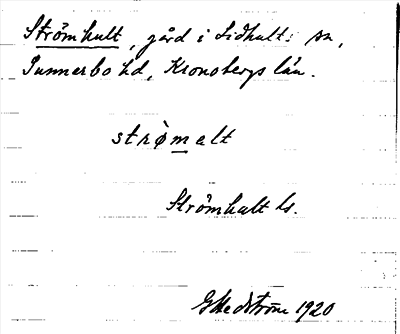 Strömhult, gård i Lidhults sn,
Sunnerbo hd, Kronobergs län.
strømalt
Strömhult hs.
G Hedström 1920